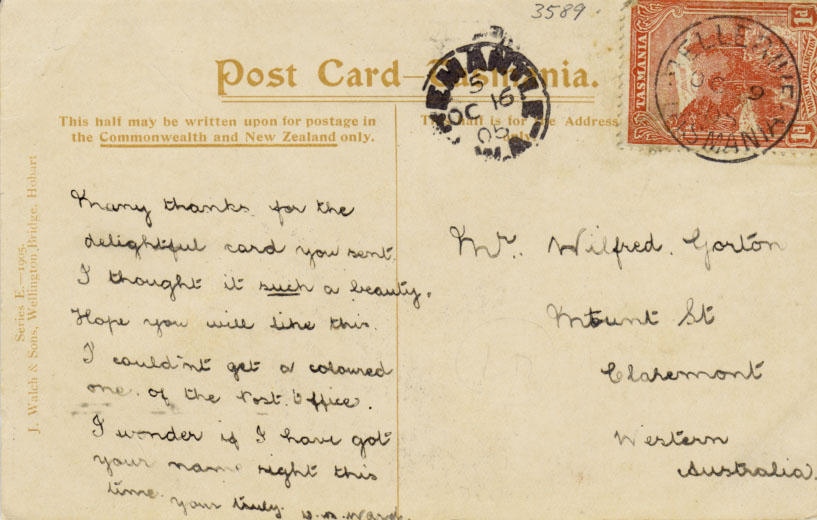 3589.
Post Card—Tasmania.
This half may be written upon for postage in
the Commonwealth and New Zealand only.
half is for the Address
only.
FREMANTLE
5
OC 16
05
W.A
TASMANIA
1d
MOUNT WELLINGTON
1d
BELLERIVE
OC 9
TASMANIA
Series E.—1905.
J. Walch & Sons, Wellington Bridge, Hobart
Many thanks for the
delightful card you sent.
I thought it such a beauty.
Hope you will like this.
I could'nt get a coloured
one of the Post Office.
I wonder if I have got
your name right this
time. your truly. Ward.
Mr. Wilfred. Gorton
Mount St
Claremont
Western
Australia.